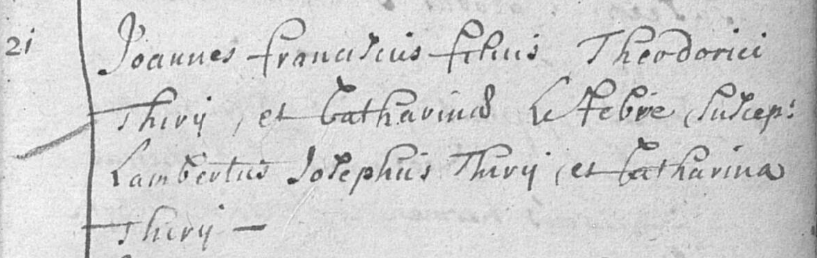 21 Joannes franciscus filius Theodorici
Thirij, et Catharinæ Le febre Suscep:
Lambertus Josephus Thirij, et Catharina
Thirij —